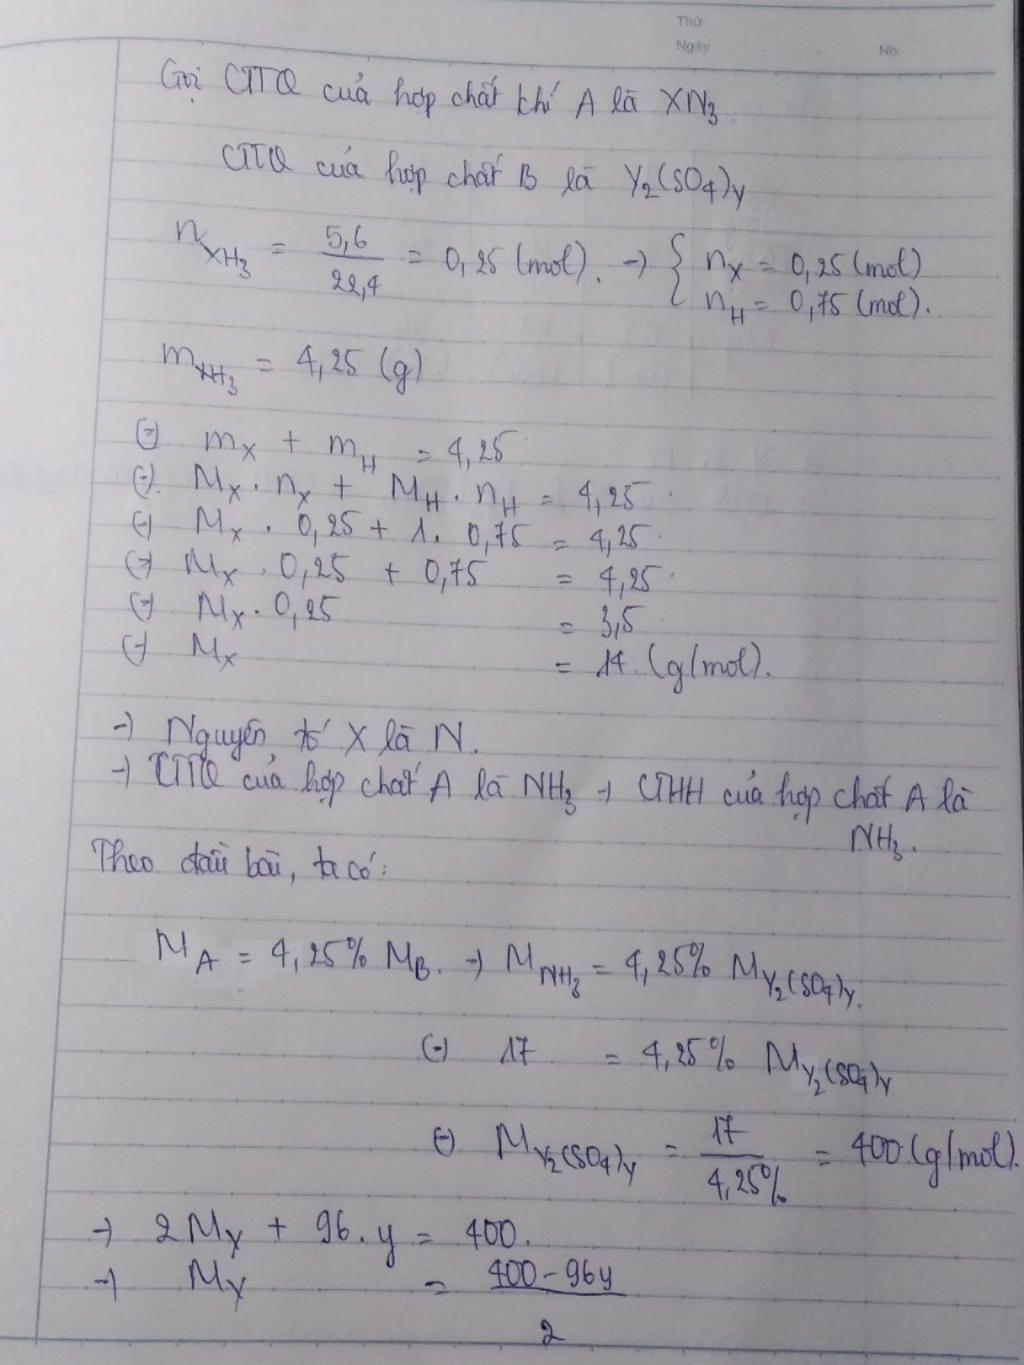 Thứ
Ngày No.
Gọi CTTQ của hợp chất khí A là XN₃
CTTQ của hợp chất B là Y₂(SO₄)y
nXH₃ = 5,6/22,4 = 0,25 (mol). → { nX = 0,25 (mol)
nH = 0,75 (mol).
mXH₃ = 4,25 (g)
(=) mX + mH = 4,25
(=) MX . nX + MH . nH = 4,25
(=) MX . 0,25 + 1. 0,75 = 4,25
(=) MX . 0,25 + 0,75 = 4,25
(=) MX . 0,25 = 3,5
(=) MX = 14 (g/mol).
→ Nguyên tố X là N.
→ CTTQ của hợp chất A là NH₃ → CTHH của hợp chất A là
NH₃.
Theo đầu bài, ta có:
MA = 4,25% MB. → MNH₃ = 4,25% MY₂(SO₄)y.
(=) 17 = 4,25% MY₂(SO₄)y
(=) MY₂(SO₄)y = 17/4,25% = 400 (g/mol).
→ 2MY + 96.y = 400.
→ MY = 400-96y/2